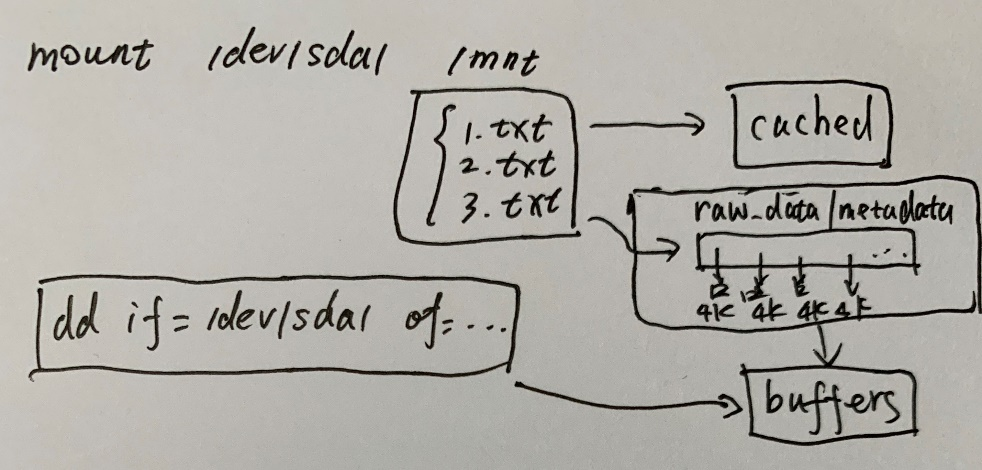 mount /dev/sda1 /mnt
1. txt
2. txt
3. txt
cached
raw_data / metadata
...
4K 4K 4K 4K
dd if = /dev/sda1 of = ...
buffers